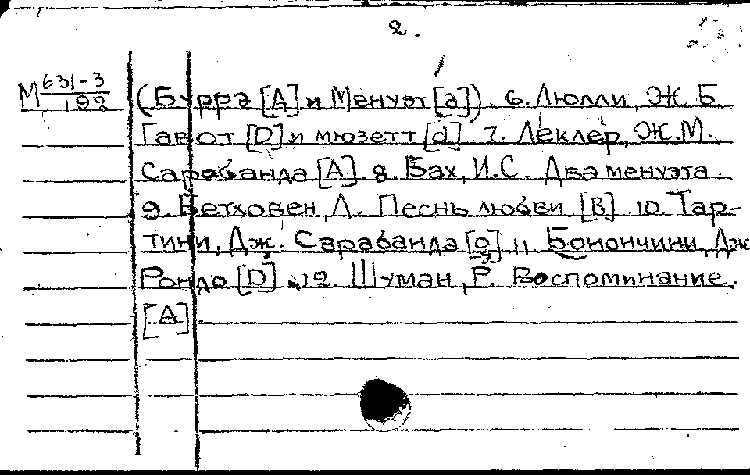 2.
М 631-3
192
(Буррэ [A] и Менуэт [a]). 6. Люлли, Ж.Б.
Гавот [D] и мюзетт [d]. 7. Леклер, Ж.М.
Сарабанда [A]. 8. Бах, И.С. Два менуэта.
9. Бетховен, Л. Песнь любви [B] 10. Тар-
тини, Дж. Сарабанда [g] 11. Бонончини, Дж
Рондо [D]. 12. Шуман, Р. Воспоминание.
[A]